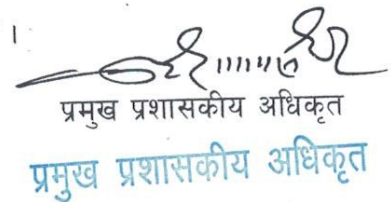 ।
प्रमुख प्रशासकीय अधिकृत
प्रमुख प्रशासकीय अधिकृत